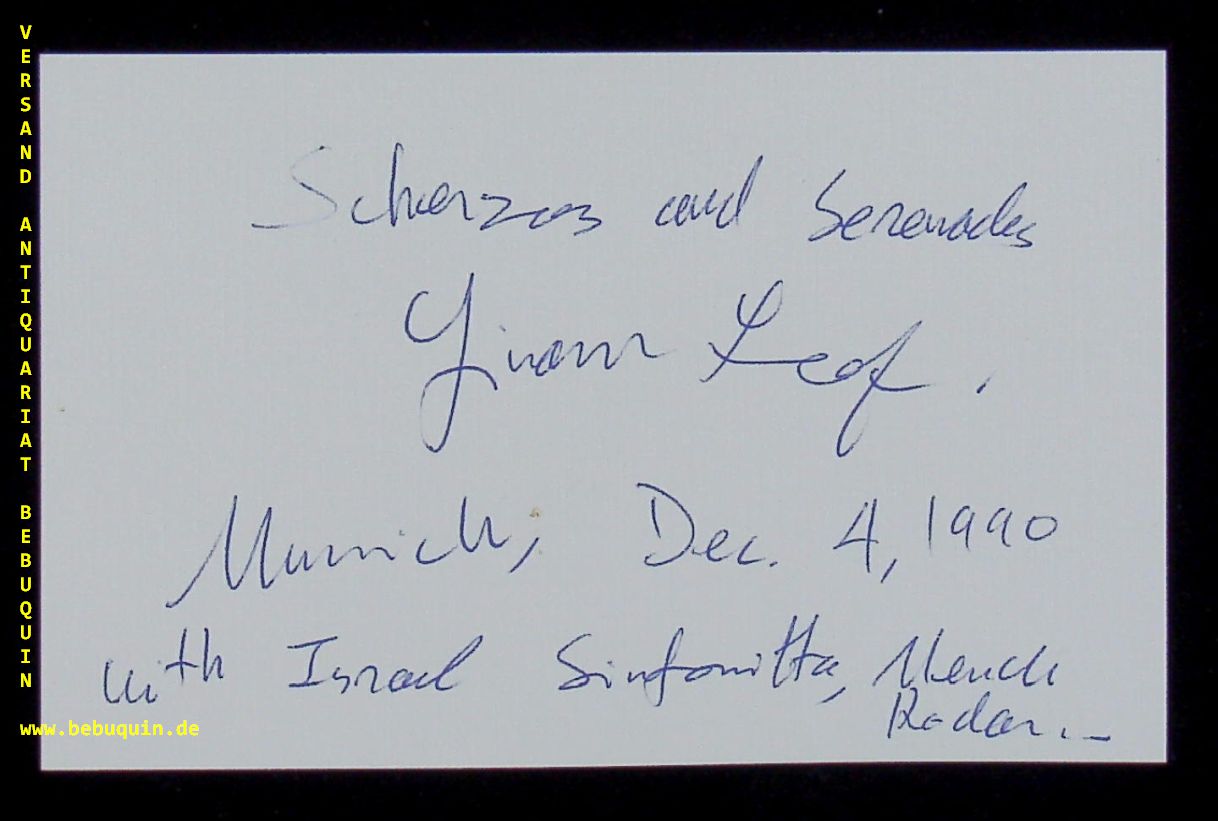 VERSAND ANTIQUARIAT BEBUQUIN
www.bebuquin.de
Scherzos and Serenades
Yinam Leef.
Munich, Dec. 4, 1990
with Israel Sinfonitta, Mendi
Rodan